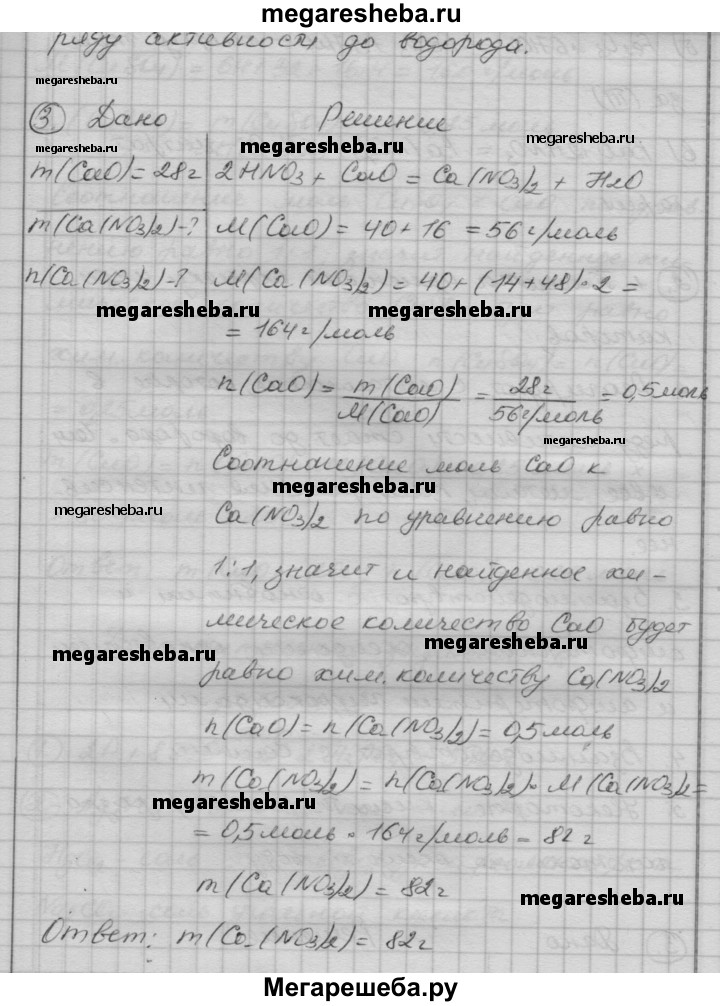 megaresheba.ru
ряду активности до водорода.
megaresheba.ru
③ Дано Решение
megaresheba.ru megaresheba.ru
m(CaO)=28г 2HNO3 + CaO = Ca(NO3)2 + H2O
m(Ca(NO3)2)-? M(CaO) = 40 + 16 = 56 г/моль
n(Ca(NO3)2)-? M(Ca(NO3)2) = 40+(14+48)·2 =
megaresheba.ru megaresheba.ru
= 164 г/моль
n(CaO) = m(CaO)/M(CaO) = 28г/56г/моль = 0,5моль
megaresheba.ru
Соотношение моль CaO к
megaresheba.ru
megaresheba.ru
Ca(NO3)2 по уравнению равно
1:1, значит и найденное хи-
мическое количество CaO будет
megaresheba.ru
megaresheba.ru
равно хим. количеству Ca(NO3)2
n(CaO) = n(Ca(NO3)2) = 0,5моль
m(Ca(NO3)2) = n(Ca(NO3)2)· M(Ca(NO3)2 =
megaresheba.ru
= 0,5моль · 164г/моль = 82 г
m(Ca(NO3)2) = 82г
megaresheba.ru
Ответ: m(Ca(NO3)2) = 82г
Мегарешеба.ру